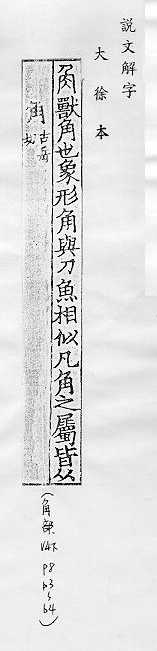 說文解字
大徐本
角獸角也象形角與刀魚相似凡角之屬皆从
角古岳切
(角部 V4下 P8 b3~b4)